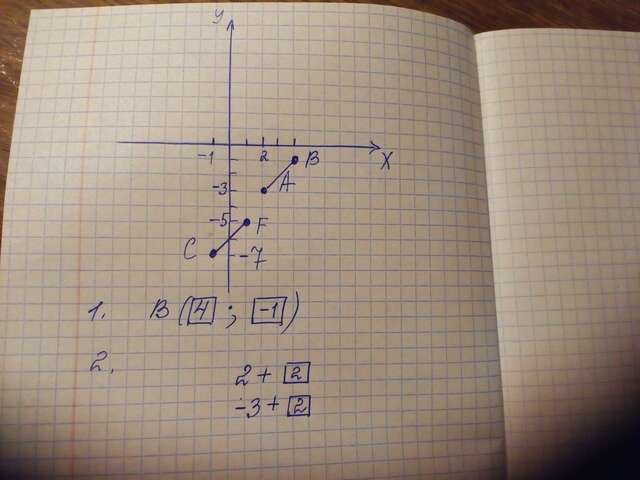 y
-1 2 B X
-3 A
-5 F
C -7
1. B (4 ; -1)
2.
2 + 2
-3 + 2